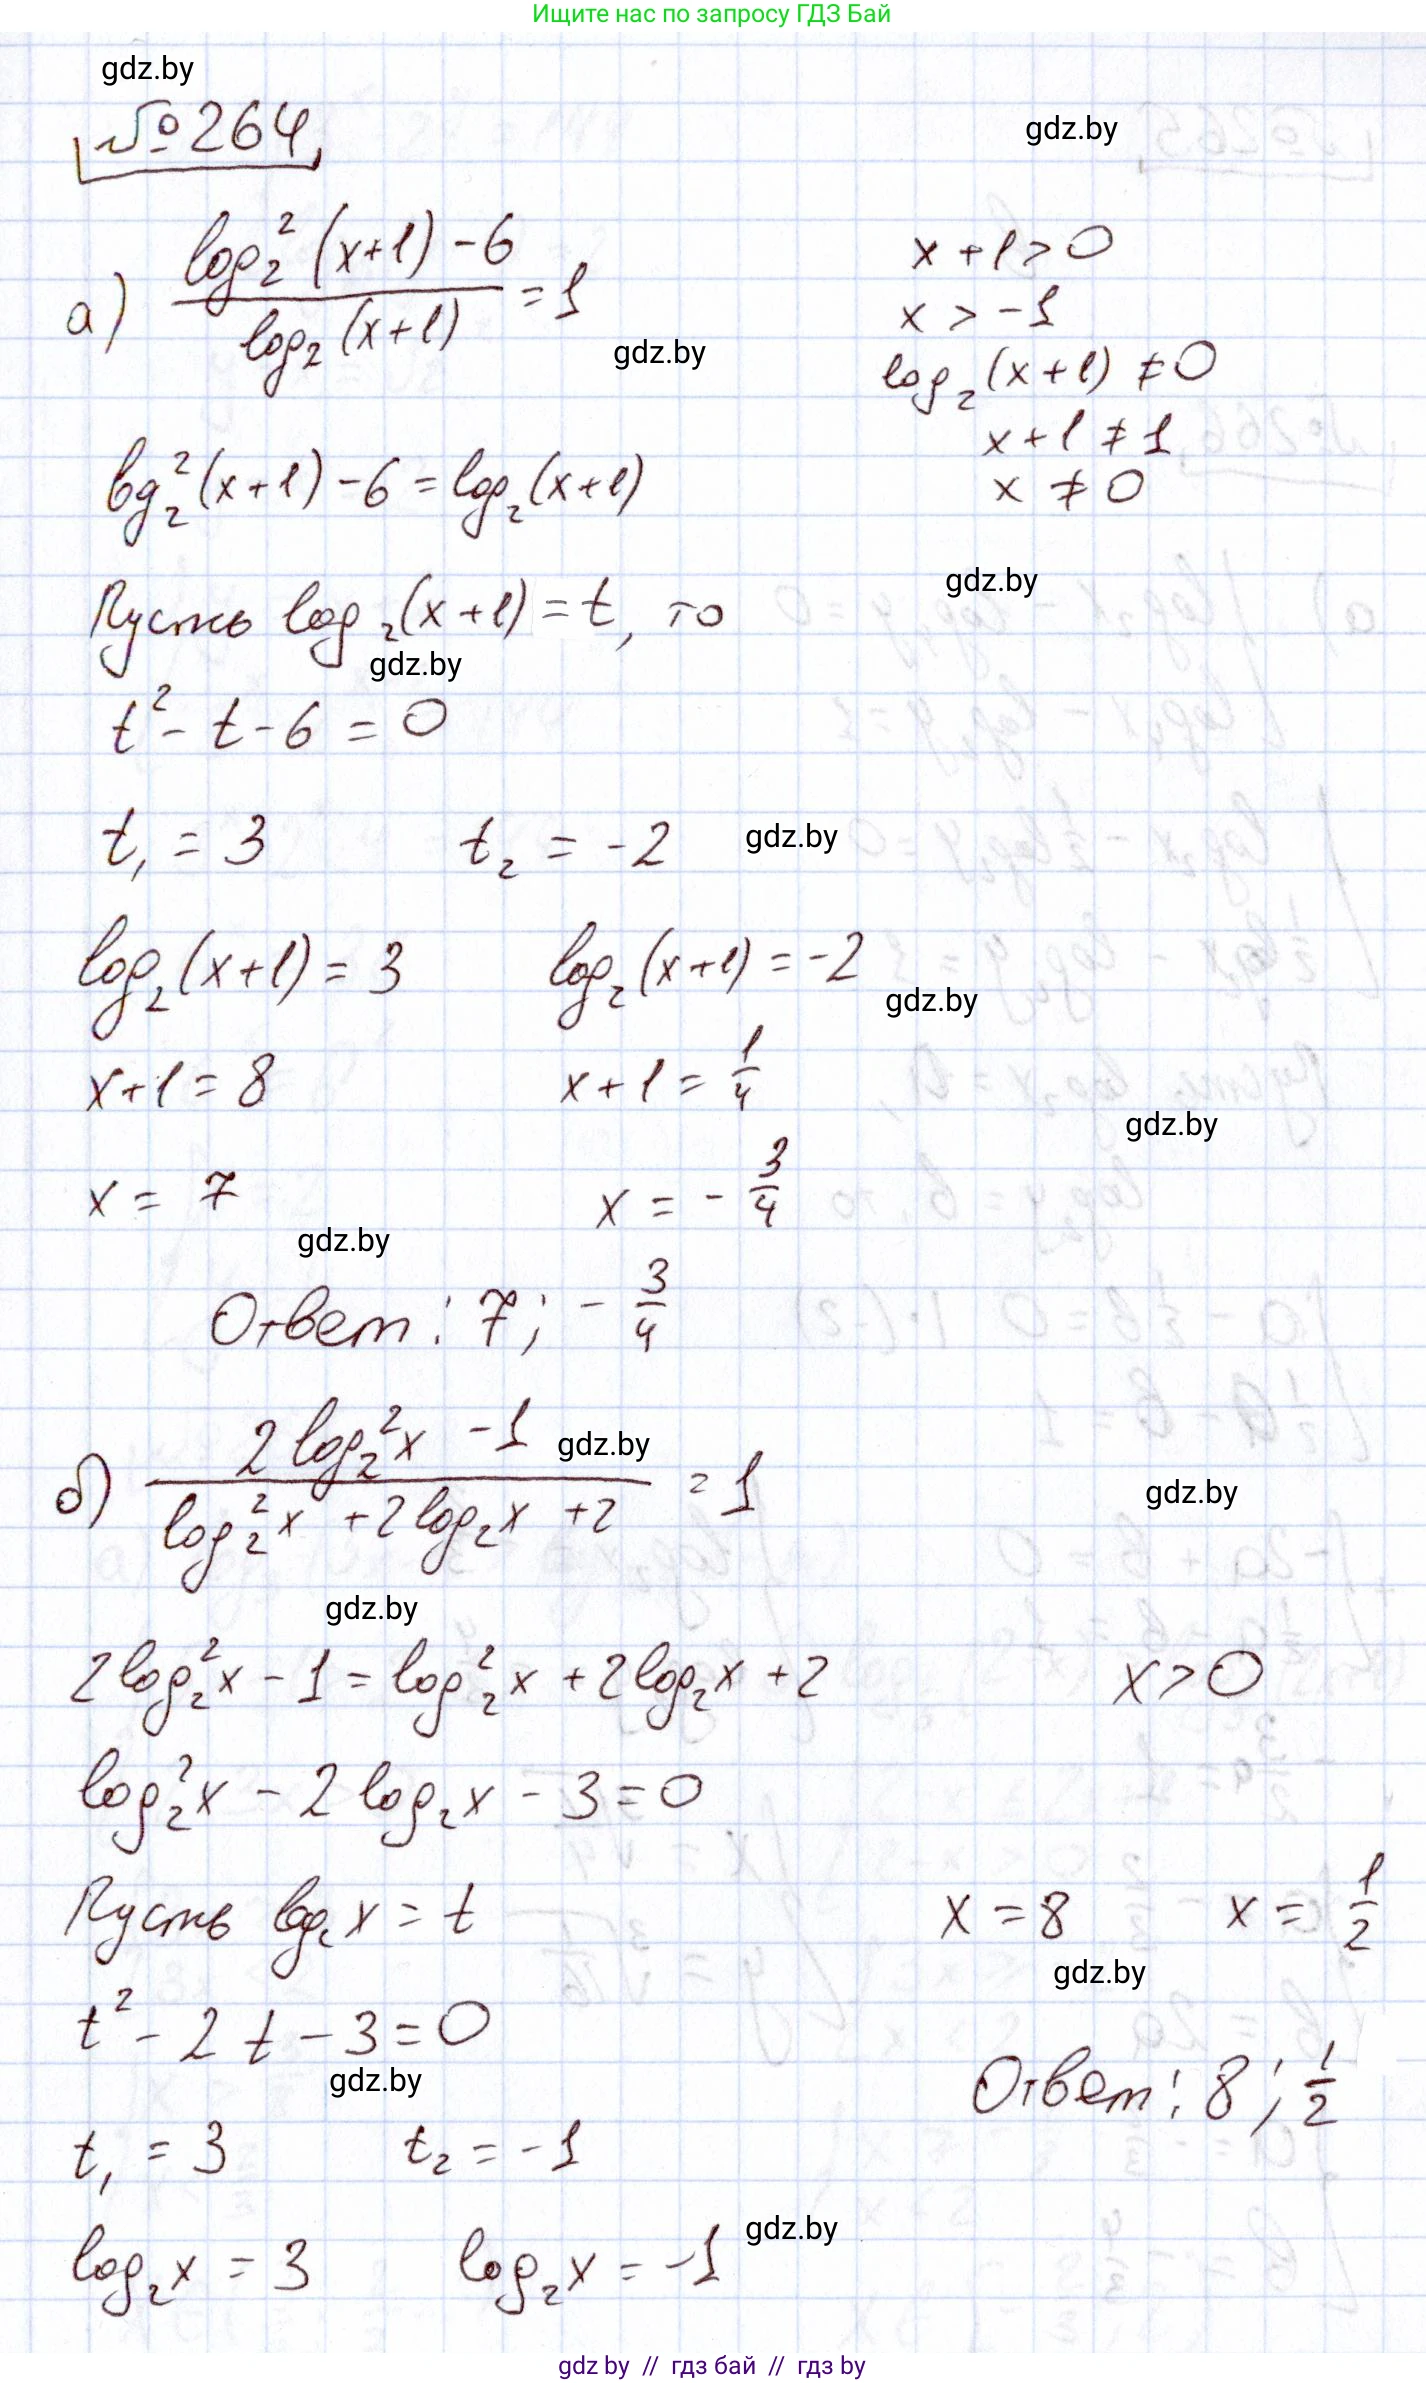 Ищите нас по запросу ГДЗ Бай
gdz.by
№264
gdz.by
а) (log₂²(x+1) - 6) / (log₂(x+1)) = 1
x + 1 > 0
x > -1
gdz.by
log₂(x+1) ≠ 0
x + 1 ≠ 1
x ≠ 0
log₂²(x+1) - 6 = log₂(x+1)
gdz.by
Пусть log₂(x+1) = t, то
gdz.by
t² - t - 6 = 0
t₁ = 3 t₂ = -2
gdz.by
log₂(x+1) = 3 log₂(x+1) = -2
gdz.by
x+1 = 8 x+1 = 1/4
gdz.by
x = 7 x = - 3/4
gdz.by
Ответ: 7; - 3/4
б) (2log₂²x - 1) / (log₂²x + 2log₂x + 2) = 1
gdz.by
gdz.by
gdz.by
2log₂²x - 1 = log₂²x + 2log₂x + 2
x > 0
log₂²x - 2log₂x - 3 = 0
Пусть log₂x = t
x = 8 x = 1/2
gdz.by
t² - 2t - 3 = 0
gdz.by
Ответ: 8; 1/2
t₁ = 3 t₂ = -1
gdz.by
log₂x = 3 log₂x = -1
gdz by // гдз бай // гдз by